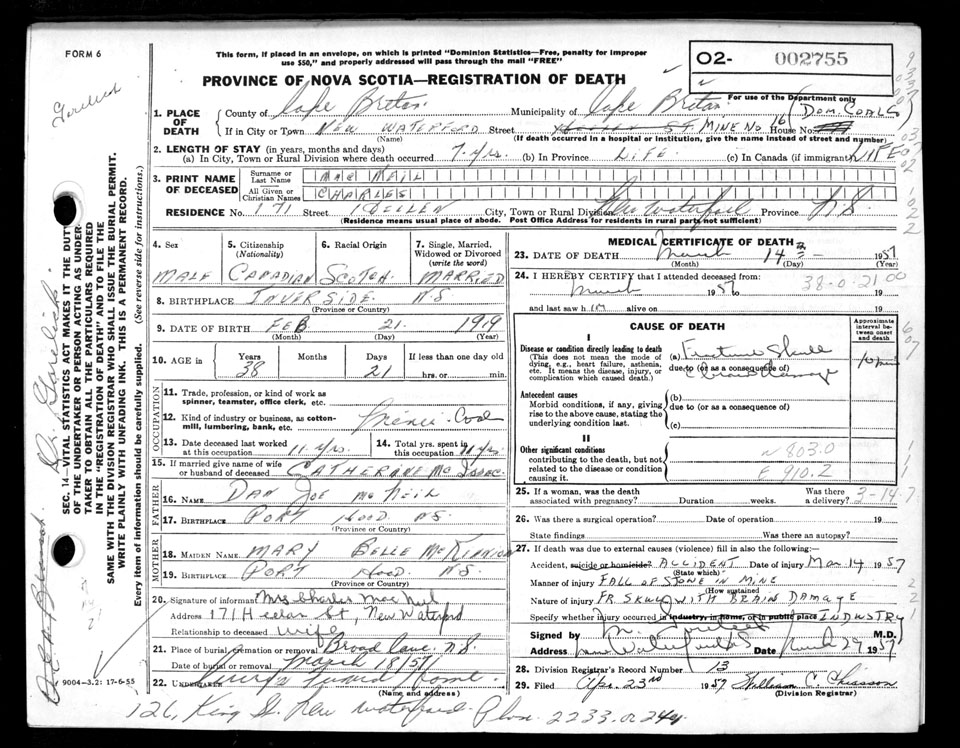 FORM 6
This form, if placed in an envelope, on which is printed "Dominion Statistics—Free, penalty for improper
use $50," and properly addressed will pass through the mail "FREE"
O2- 002755
PROVINCE OF NOVA SCOTIA—REGISTRATION OF DEATH
For use of the Department only
1. PLACE OF DEATH
County of Cape Breton Municipality of Cape Breton (Dom. Coal Co
If in City or Town NEW WATERFORD Street MINE No 16 House No.
(Name) (If death occurred in a hospital or institution, give the name instead of street and number)
2. LENGTH OF STAY (in years, months and days)
(a) In City, Town or Rural Division where death occurred 7 yrs. (b) In Province LIFE. (c) In Canada (if immigrant) LIFE
3. PRINT NAME OF DECEASED
Surname or Last Name MAC NEIL
All Given or Christian Names CHARLES
RESIDENCE No. 171 Street City, Town or Rural Division New Waterford Province N.S.
(Residence means usual place of abode. Post Office Address for residents in rural parts not sufficient)
4. Sex 5. Citizenship (Nationality) 6. Racial Origin 7. Single, Married, Widowed or Divorced (write the word)
MALE CANADIAN SCOTCH. MARRIED
8. BIRTHPLACE INVERSIDE. N.S
(Province or Country)
9. DATE OF BIRTH FEB 21. 1919
(Month) (Day) (Year)
10. AGE in Years Months Days If less than one day old
38 21 hrs. or min.
OCCUPATION
11. Trade, profession, or kind of work as spinner, teamster, office clerk, etc.
12. Kind of industry or business, as cotton-mill, lumbering, bank, etc. Coal
13. Date deceased last worked at this occupation 11 yrs. 14. Total yrs. spent in this occupation 11 yrs.
15. If married give name of wife or husband of deceased CATHERINE Mc Isaac.
FATHER
16. NAME DAN JOE McNEIL
17. BIRTHPLACE PORT HOOD N.S.
(Province or Country)
MOTHER
18. MAIDEN NAME MARY BELLE McKINNION
19. BIRTHPLACE PORT HOOD. N.S.
(Province or Country)
20. Signature of informant Mrs Charles Mac Neil
Address 171 St, New Waterford
Relationship to deceased wife
21. Place of burial, cremation or removal Broad Cove. N.S.
Date of burial or removal March 18/57
22. UNDERTAKER Home.
(Name and address)
126, King St. New Waterford. Phon. 2233. or 244
MEDICAL CERTIFICATE OF DEATH
23. DATE OF DEATH March 14 1957
(Month) (Day) (Year)
24. I HEREBY CERTIFY that I attended deceased from:
March 1957 to 19
38-0-21 00
and last saw him alive on 19
CAUSE OF DEATH
Approximate interval between onset and death
I
Disease or condition directly leading to death
(This does not mean the mode of dying, e.g., heart failure, asthenia, etc. It means the disease, injury, or complication which caused death.)
(a) Fracture Skull
due to (or as a consequence of)
10 min
Antecedent causes
Morbid conditions, if any, giving rise to the above cause, stating the underlying condition last.
(b)
due to (or as a consequence of)
(c)
II
Other significant conditions
contributing to the death, but not related to the disease or condition causing it.
N 803.0
E 910.2
25. If a woman, was the death associated with pregnancy? Duration weeks. Was there a delivery?
3-14.7
26. Was there a surgical operation? Date of operation 19
State findings Was there an autopsy?
27. If death was due to external causes (violence) fill in also the following:
Accident, suicide or homicide? ACCIDENT Date of injury Mar 14 1957
(State which)
Manner of injury FALL OF STONE IN MINE
(How sustained)
Nature of injury FR SKULL WITH BRAIN DAMAGE
Specify whether injury occurred in industry, in home, or in public place INDUSTRY
Signed by M.D.
Address New Waterford N.S Date March 29 1957
28. Division Registrar's Record Number 13
29. Filed Apr. 23rd 1957 William C. Chiasson
(Division Registrar)
SEC. 14—VITAL STATISTICS ACT MAKES IT THE DUTY
OF THE UNDERTAKER OR PERSON ACTING AS UNDER-
TAKER TO OBTAIN ALL THE PARTICULARS REQUIRED
IN THE "REGISTRATION OF DEATH" AND TO FILE THE
SAME WITH THE DIVISION REGISTRAR WHO SHALL ISSUE THE BURIAL PERMIT.
WRITE PLAINLY WITH UNFADING INK. THIS IS A PERMANENT RECORD.
Every item of information should be carefully supplied. (See reverse side for instructions.)
9004-3.2: 17-6-55